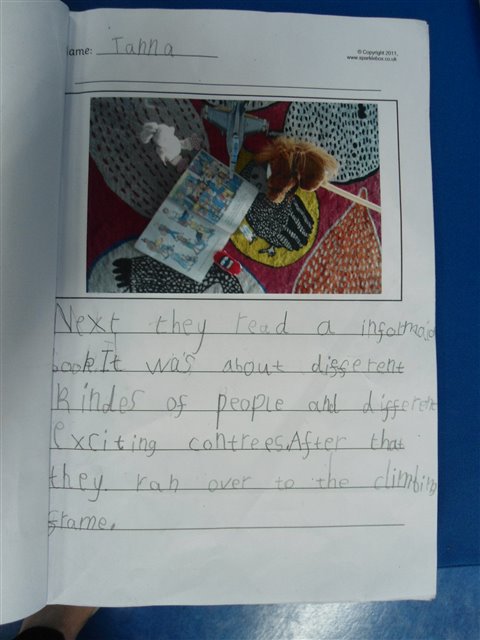 Name: Tanna
© Copyright 2011,
www.sparklebox.co.uk
Next they read a
book.It was about different
kindes of people and different
exciting contrees.After that
they ran over to the climbing
frame.